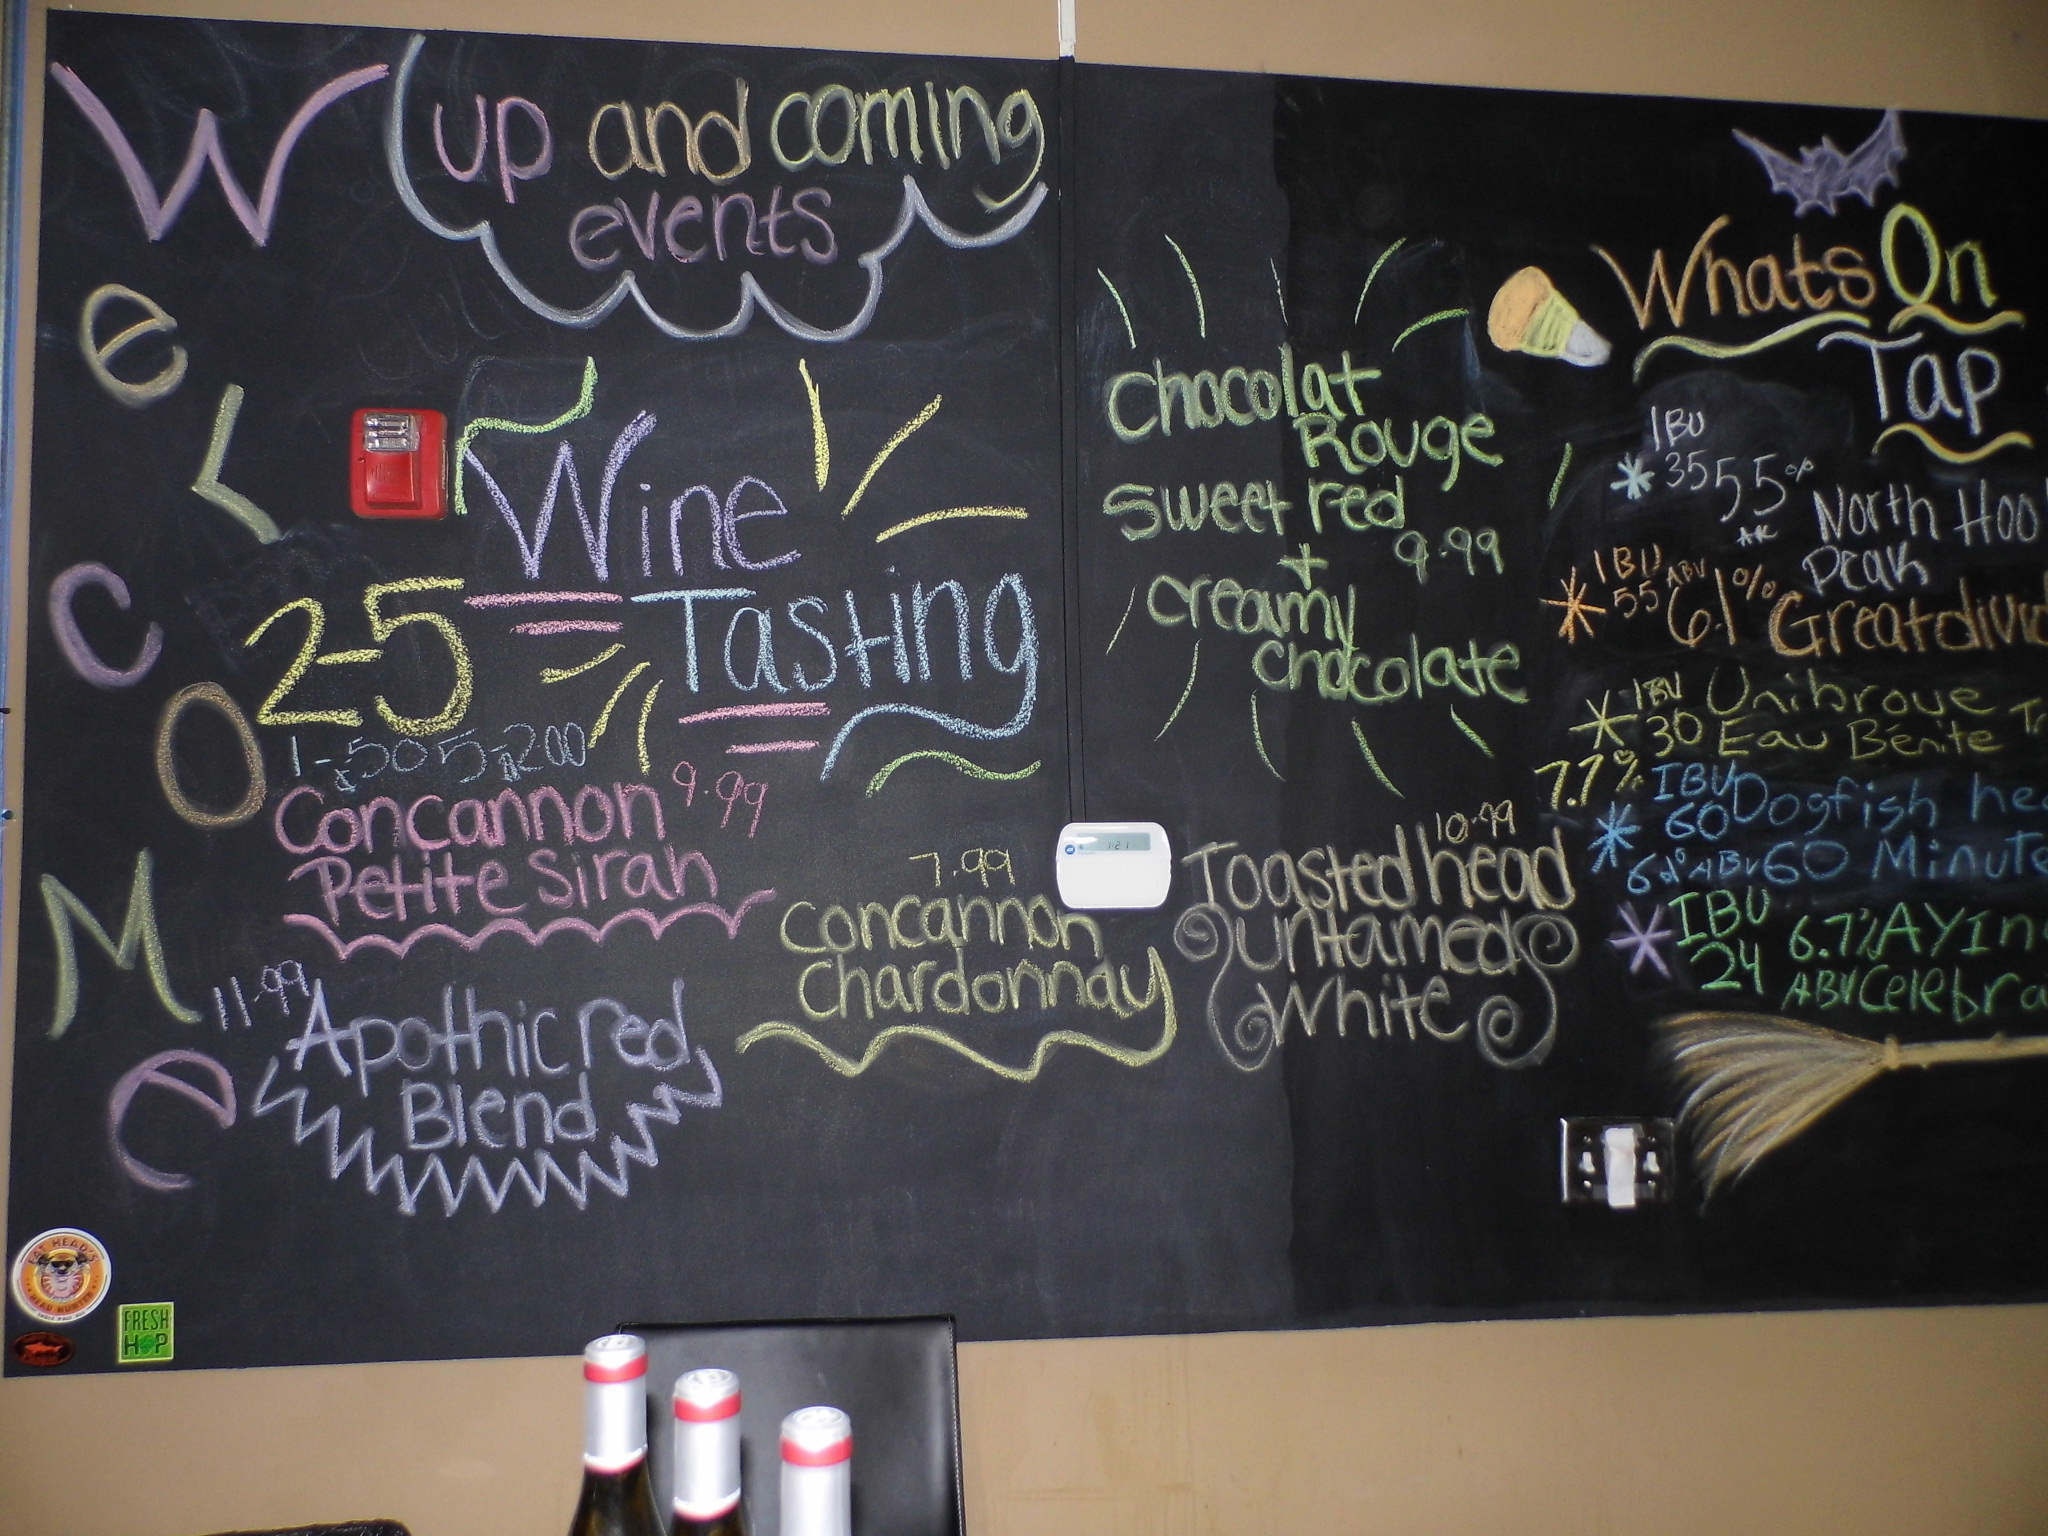 WeLCOMe
up and coming
events
Wine
2-5 Tasting
1-.50 5-2.00
Concannon 9.99
Petite Sirah
11.99
Apothic red
Blend
7.99
Concannon
Chardonnay
Chocolat
Rouge
Sweet red
+ 9.99
creamy
chocolate
10.99
Toasted head
untamed
White
Whats On
Tap
IBU
35 55%
North Hoo
Peak
IBU ABV
55 6.1% Great divid
IBU Unibroue
30 Eau Bénite Tr
7.7%
IBU Dogfish hea
60
ABV 60 Minute
IBU
24 6.7% AYIn
ABV Celebra
FAT HEAD'S
HEAD HUNTER
FRESH
HOP